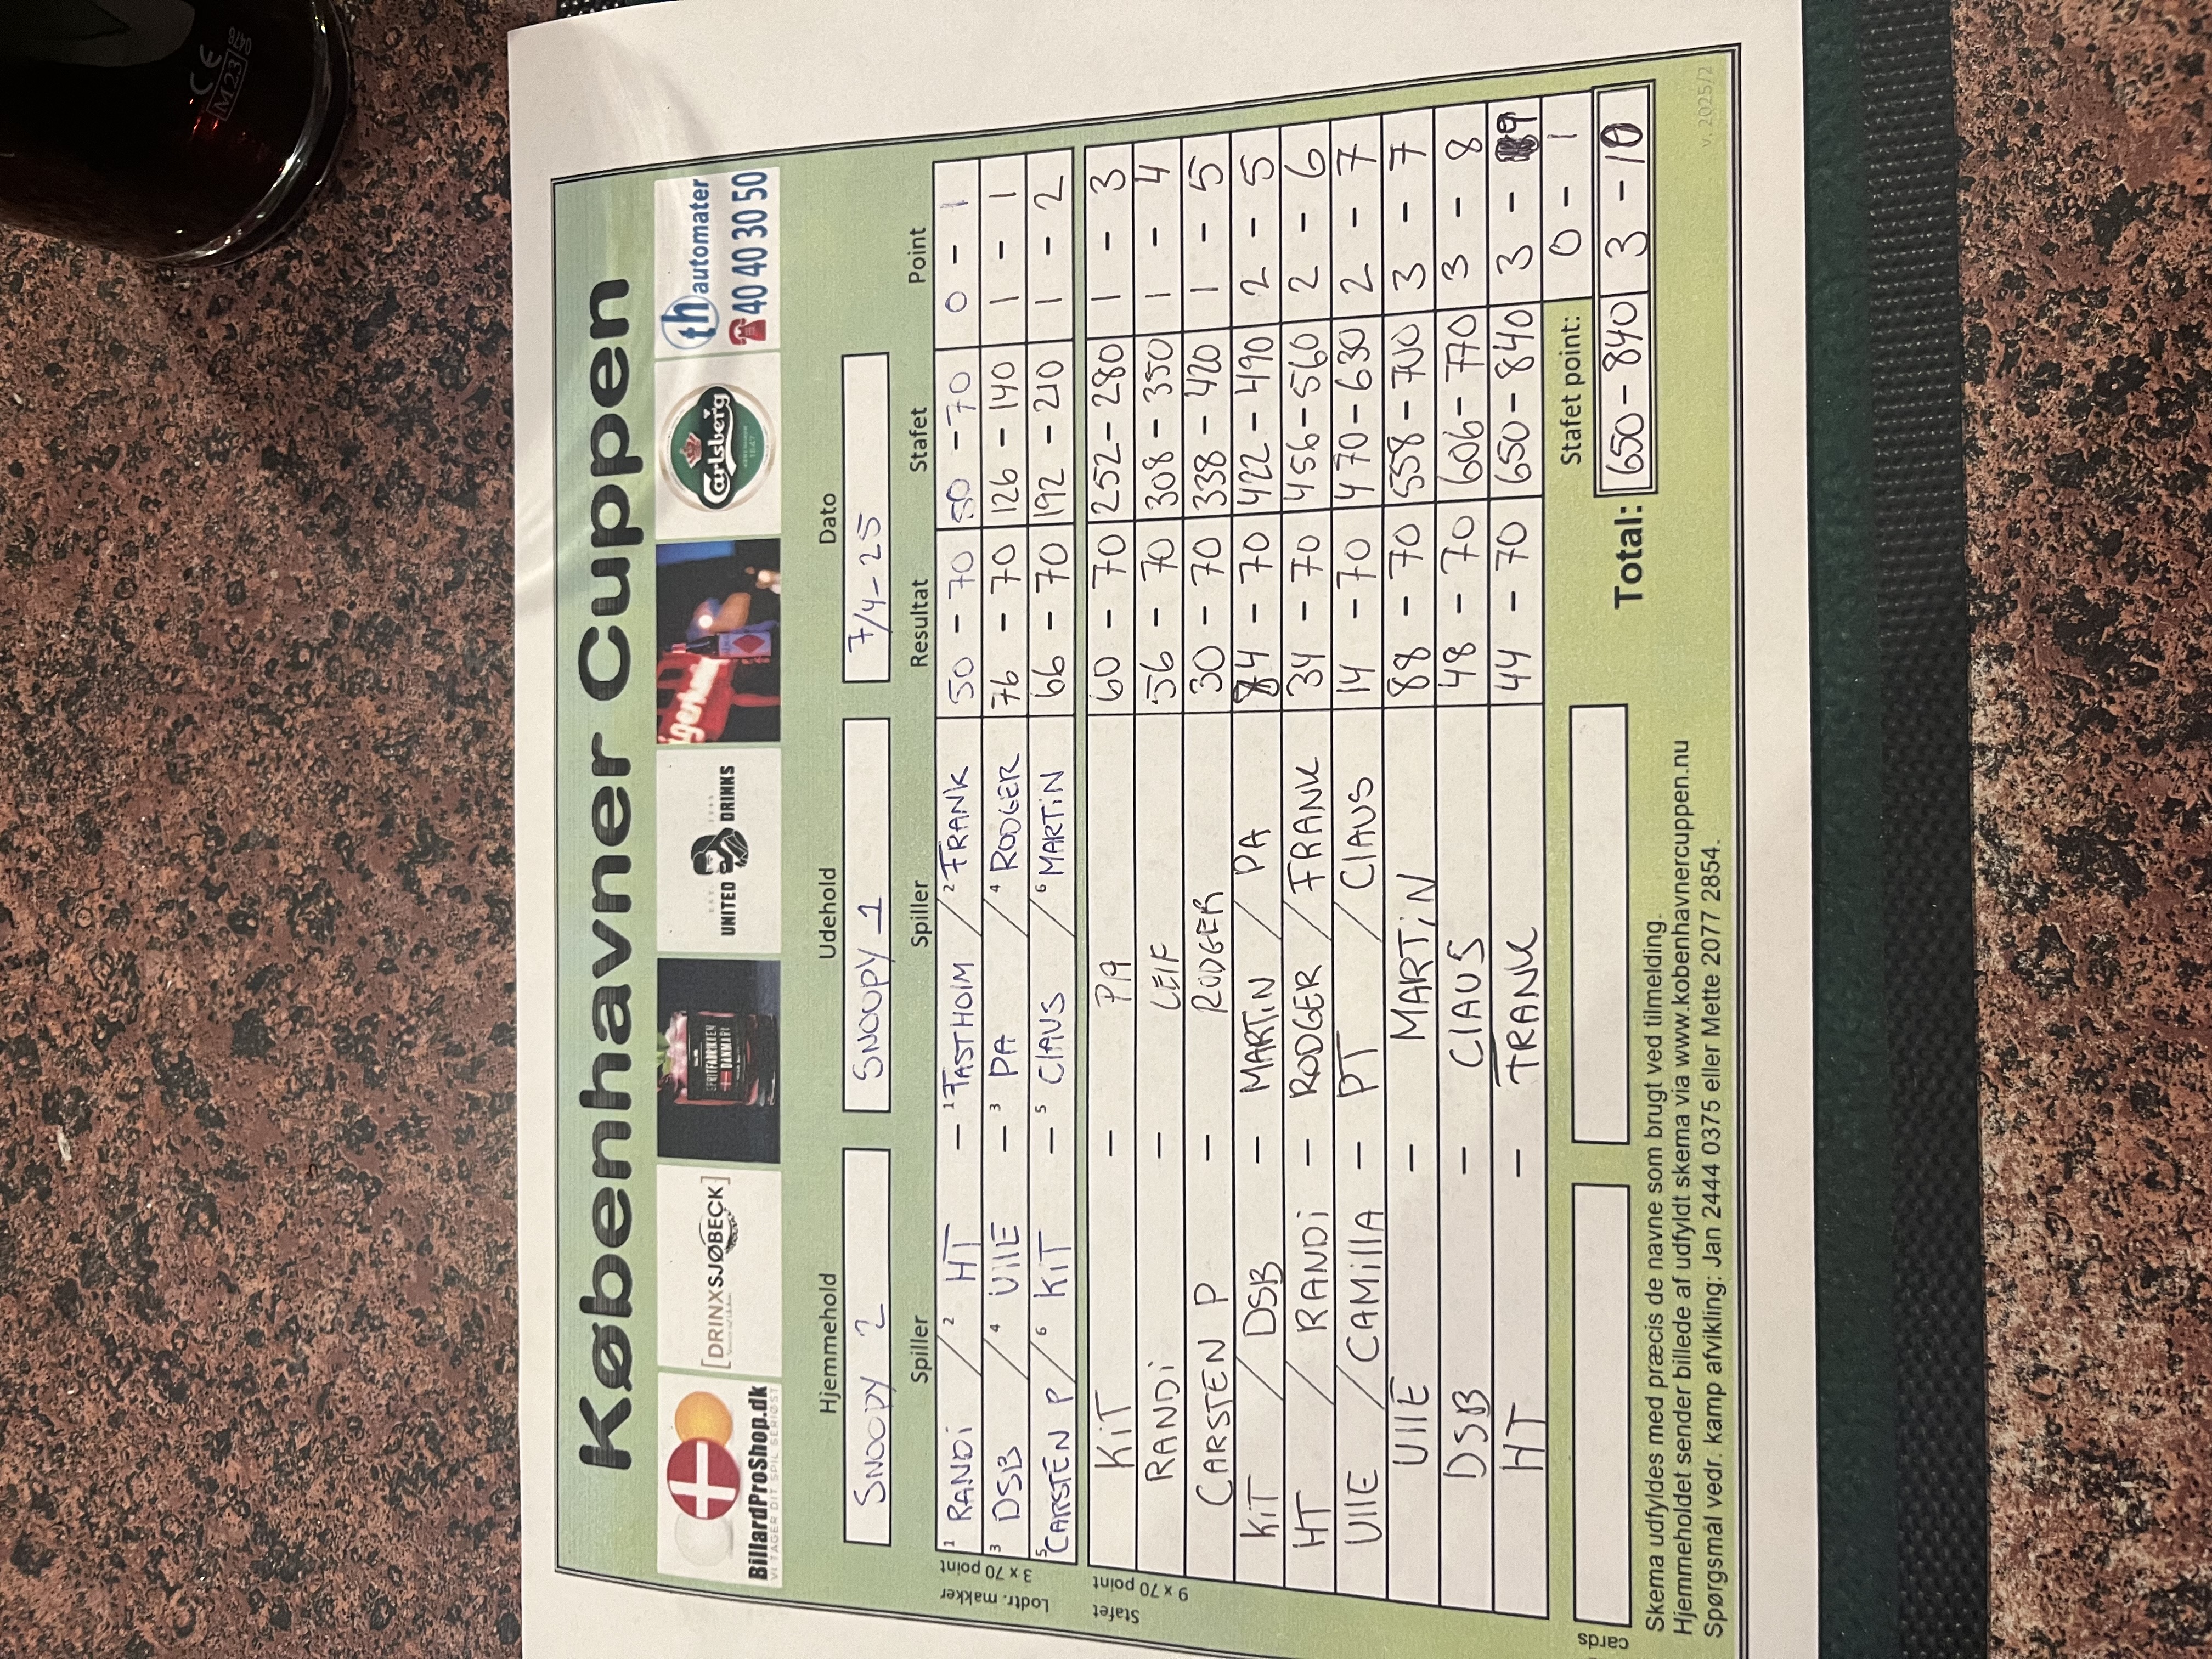 Københavner Cuppen
BillardProShop.dk
VI TAGER DIT SPIL SERIØST
[DRINXSJØBECK]
SPRITFABRIKEN
DANMARK
UNITED DRINKS
Carlsberg
th automater
40 40 30 50
Hjemmehold Udehold Dato
SNOOPY 2 SNOOPY 1 7/4-25
Spiller Spiller Resultat Stafet Point
Lodtr. makker
3 x 70 point
1 RANDi / 2 HT - 1 FASTHOLM / 2 FRANK 50 - 70 50 - 70 0 - 1
3 DSB / 4 UllE - 3 PA / 4 RODGER 76 - 70 126 - 140 1 - 1
5 CARSTEN P / 6 KiT - 5 ClAUS / 6 MARTiN 66 - 70 192 - 210 1 - 2
Stafet
9 x 70 point
KiT - PA 60 - 70 252 - 280 1 - 3
RANDi - LEIF 56 - 70 308 - 350 1 - 4
CARSTEN P - RODGER 30 - 70 338 - 420 1 - 5
KiT / DSB - MARTiN / PA 84 - 70 422 - 490 2 - 5
HT / RANDi - RODGER / FRANK 34 - 70 456 - 560 2 - 6
UllE / CAMillA - PT / ClAUS 14 - 70 470 - 630 2 - 7
UllE - MARTiN 88 - 70 558 - 700 3 - 7
DSB - ClAUS 48 - 70 606 - 770 3 - 8
HT - FRANK 44 - 70 650 - 840 3 - 9
Stafet point: 0 - 1
cards Total: 650 - 840 3 - 10
Skema udfyldes med præcis de navne som brugt ved tilmelding.
Hjemmeholdet sender billede af udfyldt skema via www.kobenhavnercuppen.nu
Spørgsmål vedr. kamp afvikling: Jan 2444 0375 eller Mette 2077 2854.
v. 2025/2
CE
M23
0476